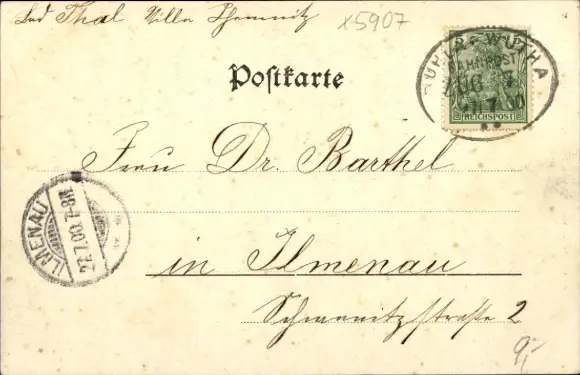 Bad Thal Villa Chemnitz
x5907
RUHLA-WUTHA
BAHNPOST
ZUG 7
REICHSPOST
Postkarte
Frau Dr. Barthel
ILMENAU
27.7.00.7-8N
in Ilmenau
2
9,-